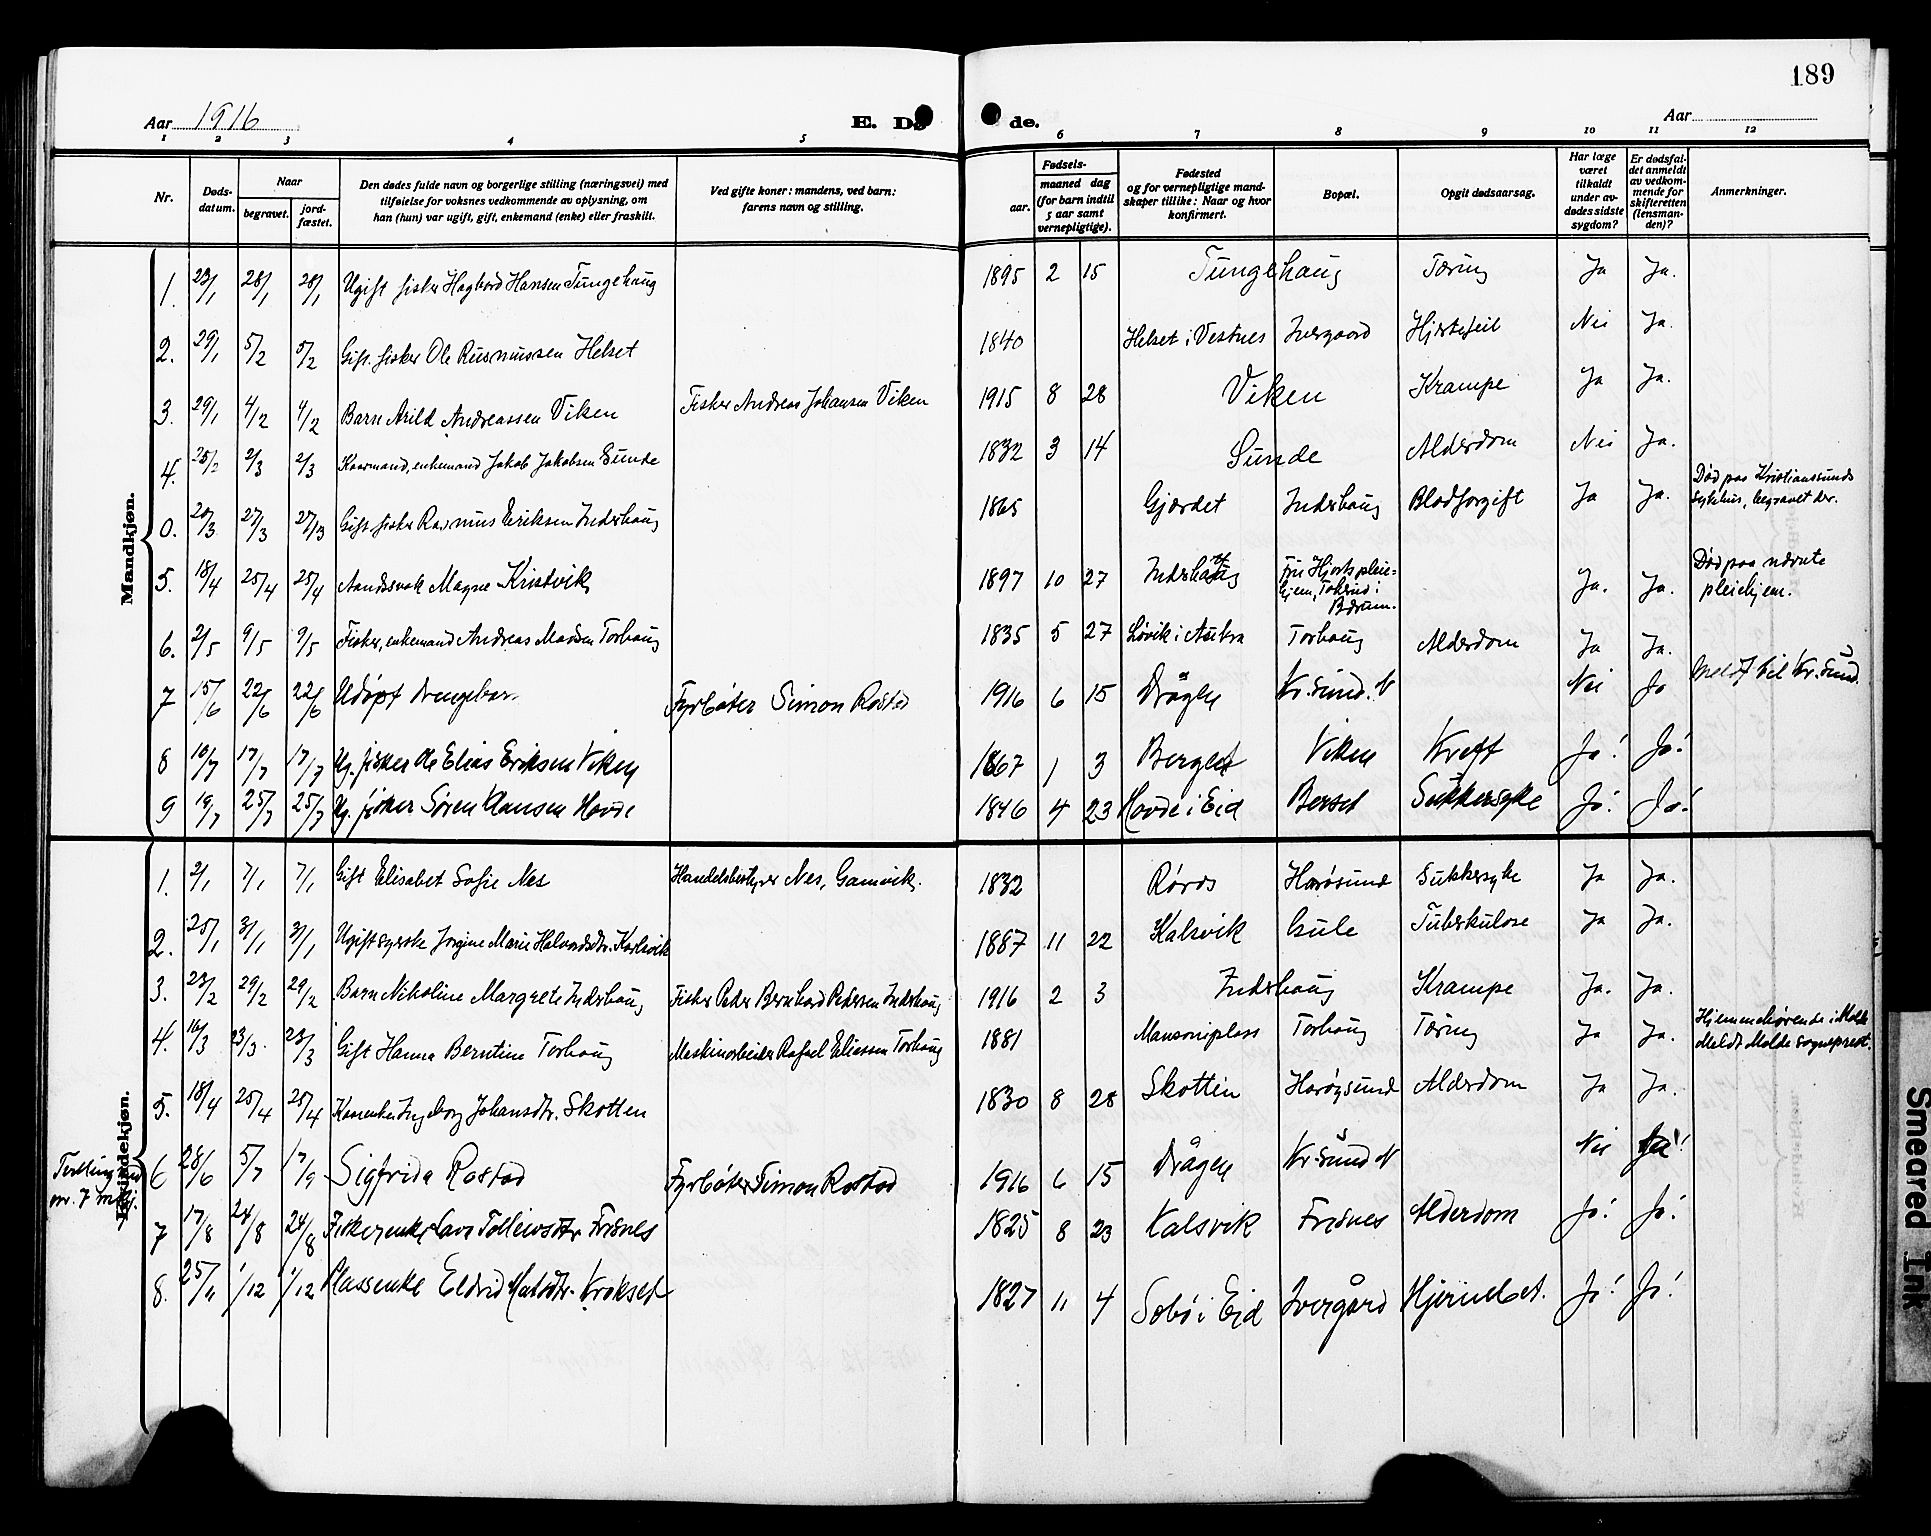 189
Aar 1916
E. Dø
de.
Aar
1 2 3 4 5 6 7 8 9 10 11 12
Nr.
Døds-
datum.
Naar
begravet.
jord-
fæstet.
Den dødes fulde navn og borgerlige stilling (næringsvei) med
tilføielse for voksnes vedkommende av oplysning, om
han (hun) var ugift, gift, enkemand (enke) eller fraskilt.
Ved gifte koner: mandens, ved barn:
farens navn og stilling.
Fødsels-
aar.
maaned dag
(for barn indtil
5 aar samt
vernepligtige).
Fødested
og for vernepligtige mand-
skaper tillike: Naar og hvor
konfirmert.
Bopæl.
Opgit dødsaarsag.
Har læge
været
tilkaldt
under av-
dødes sidste
sygdom?
Er dødsfal-
det anmeldt
av vedkom-
mende for
skifteretten
(lensman-
den)?
Anmerkninger.
Mandkjøn.
1. 23/1 28/1 28/1 Ugift fisker Hagbard Hansen Tungehaug 1895 2 15 Tungehaug Tæring Ja Ja.
2. 29/1 5/2 5/2 Gift fisker Ole Rasmussen Helset 1840 Helset i Vestnes Ivergaard Hjertefeil Nei Ja.
3. 29/1 4/2 4/2 Barn Arild Andreassen Viken Fisker Andreas Johansen Viken 1915 8 28 Viken Krampe Ja Ja.
4. 25/2 2/3 2/3 Kaarmand, enkemand Jakob Jakobsen Sunde 1832 3 14 Sunde Alderdom Nei Ja.
0. 20/3 27/3 27/3 Gift fisker Rasmus Eriksen Inderhaug 1865 Gjærdet Inderhaug Blodforgift Ja Ja. Død paa Kristianssunds
sykehus, begravet der.
5. 18/4 25/4 25/4 Aandssvak Magne Kristvik 1897 10 27 Inderhaug Fru Hjorts pleie-
hjem, Tokerud i
Bærum. Ja. Ja. Død paa nævnte
pleiehjem.
6. 2/5 9/5 9/5 Fisker, enkemand Andreas Madsen Torhaug 1835 5 27 Løvik i Aukra Torhaug Alderdom Ja Ja.
7 15/6 22/6 22/6 Udöpt drengebarn Fyrböter Simon Rostad 1916 6 15 Drågen Kr.sund. N Nei Ja Meldt til Kr.sund.
8 10/7 17/7 17/7 Ug. fisker Ole Elias Eriksen Viken 1867 1 3 Berget Viken Kreft Ja! Ja!
9 19/7 25/7 25/7 Ug. fisker Sören Hansen Hovde 1846 4 23 Hovde i Eid Berset Sukkersyke Ja! Ja!
Kvindekjøn.
1. 2/1 7/1 7/1 Gift Elisabet Sofie Nes Handelsbestyrer Nes, Gamvik. 1832 Røros Harøsund Sukkersyke Ja Ja.
2. 25/1 31/1 31/1 Ugift syerske Jørgine Marie Halvardsdtr. Karlsvik 1887 11 22 Kalsvik Gule Tuberkulose Ja Ja.
3. 23/2 29/2 29/2 Barn Nikoline Margrete Inderhaug Fisker Peder Bernhard Pedersen Inderhaug 1916 2 3 Inderhaug Krampe Ja. Ja.
4. 16/3 23/3. 23/3 Gift Hanna Berntine Torhaug Maskinarbeider Rafael Eliassen Torhaug 1881 Torhaug Tæring Ja Ja. Hjemmehørende i Molde
Meldt Molde sogneprest.
5. 18/4 25/4 25/4 Kaarenke Ingeborg Johansdtr. Skotten 1830 8 28 Skotten Harøysund Alderdom Ja Ja.
Tvilling med
nr. 7 mkj.
6 28/6 5/7 17/9 Sigfrida Rostad Fyrböter Simon Rostad 1916 6 15 Drågen Kr.sund N Nei Ja!
7 17/8 24/8 24/8 Fiskerenke Lava Tolleivsdtr Frisnes 1825 8 23 Kalsvik Frisnes Alderdom Ja! Ja!
8. 25/11 1/12 1/12 Plassenke Eldrid Matsdtr. Krokset 1827 11 4 Solbø i Eid Ivergård Hjerneblöt. Ja! Ja!
Smeared Ink